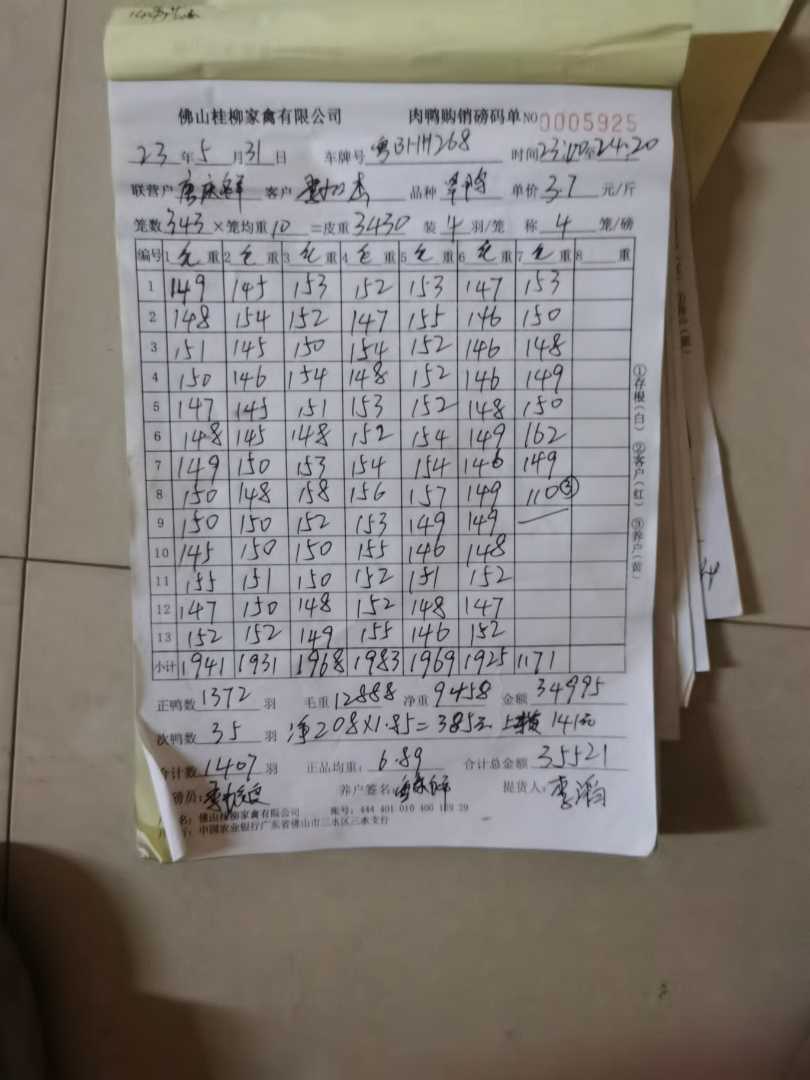 佛山桂柳家禽有限公司 肉鸭购销磅码单 NO 0005925
23年5月31日 车牌号 粤BHH268 时间23:00至24:20
联营户 客户 品种 单价 3.7 元/斤
笼数343×笼均重10=皮重3430 装4羽/笼 称4笼/磅
编号 1 毛重 2 毛重 3 毛重 4 毛重 5 毛重 6 毛重 7 毛重 8 重
1 149 145 153 152 153 147 153
2 148 154 152 147 155 146 150
3 151 145 150 154 152 146 148
4 150 146 154 148 152 146 149
5 147 145 151 153 152 148 150
6 148 145 148 152 154 149 162
7 149 150 153 154 154 146 149
8 150 148 158 156 157 149 110③
9 150 150 152 153 149 149 —
10 145 150 150 155 146 148
11 155 151 150 152 151 152
12 147 150 148 152 148 147
13 152 152 149 155 146 152
小计 1941 1931 1968 1983 1969 1925 1171
正鸭数 1372 羽 毛重 12888 净重 9458 金额 34995
次鸭数 35 羽 净208×1.85=385元 141元
合计数 1407 羽 正品均重: 6.89 合计总金额 35521
磅员: 养户签名: 提货人:
名: 佛山桂柳家禽有限公司 账号: 444 401 010 400 189 29
行: 中国农业银行广东省佛山市三水区三水支行
①存根(白) ②客户(红) ③养户(黄)